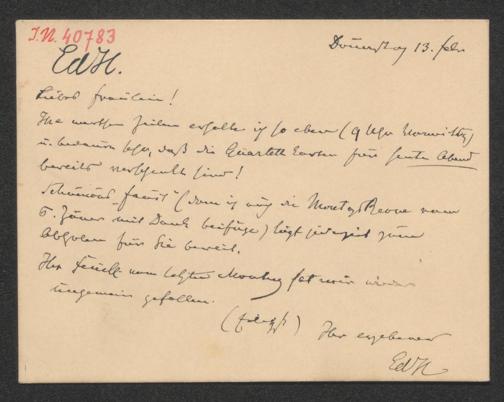 I.N. 40783
EdH.
Donnerstag 13. Febr
Liebes Fräulein!
Ihre werthen Zeilen erhalte ich so eben (9 Uhr Vormittag)
u. bedaure sehr, daß die Quartett Karten für heute Abend
bereits verschenkt sind!
Schumanns Faust (dem ich auch die Montags Revue vom
5. Jänner mit Dank beifüge) liegt jederzeit zum
Abholen für Sie bereit.
Ihr Feuill. vom letzten Montag hat mir wieder
ungemein gefallen.
Ihr ergebener
EdH